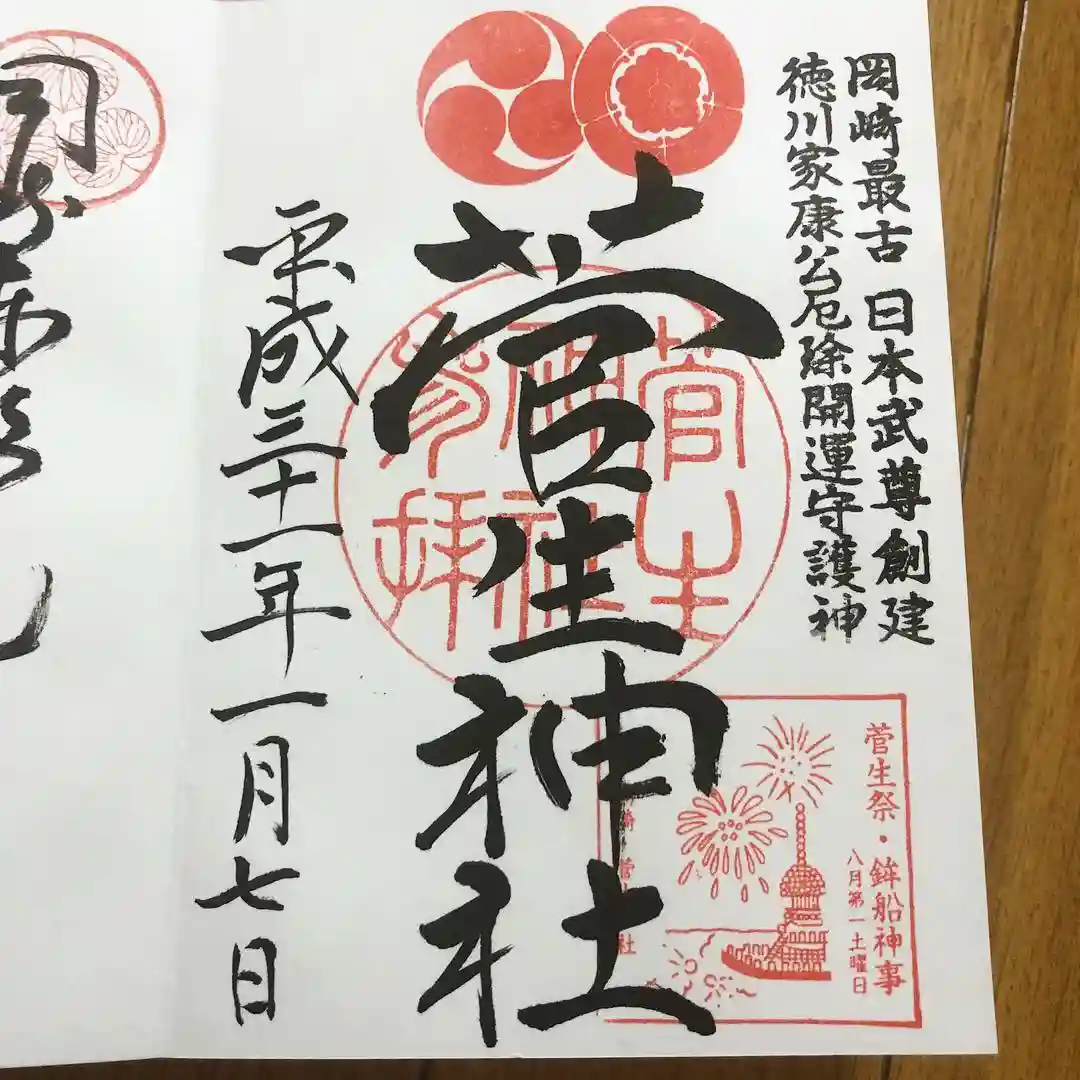 岡崎最古 日本武尊創建
徳川家康公厄除開運守護神
菅生神社
菅生
神社
参拝
平成三十一年一月七日
菅生祭・鉾船神事
八月第一土曜日